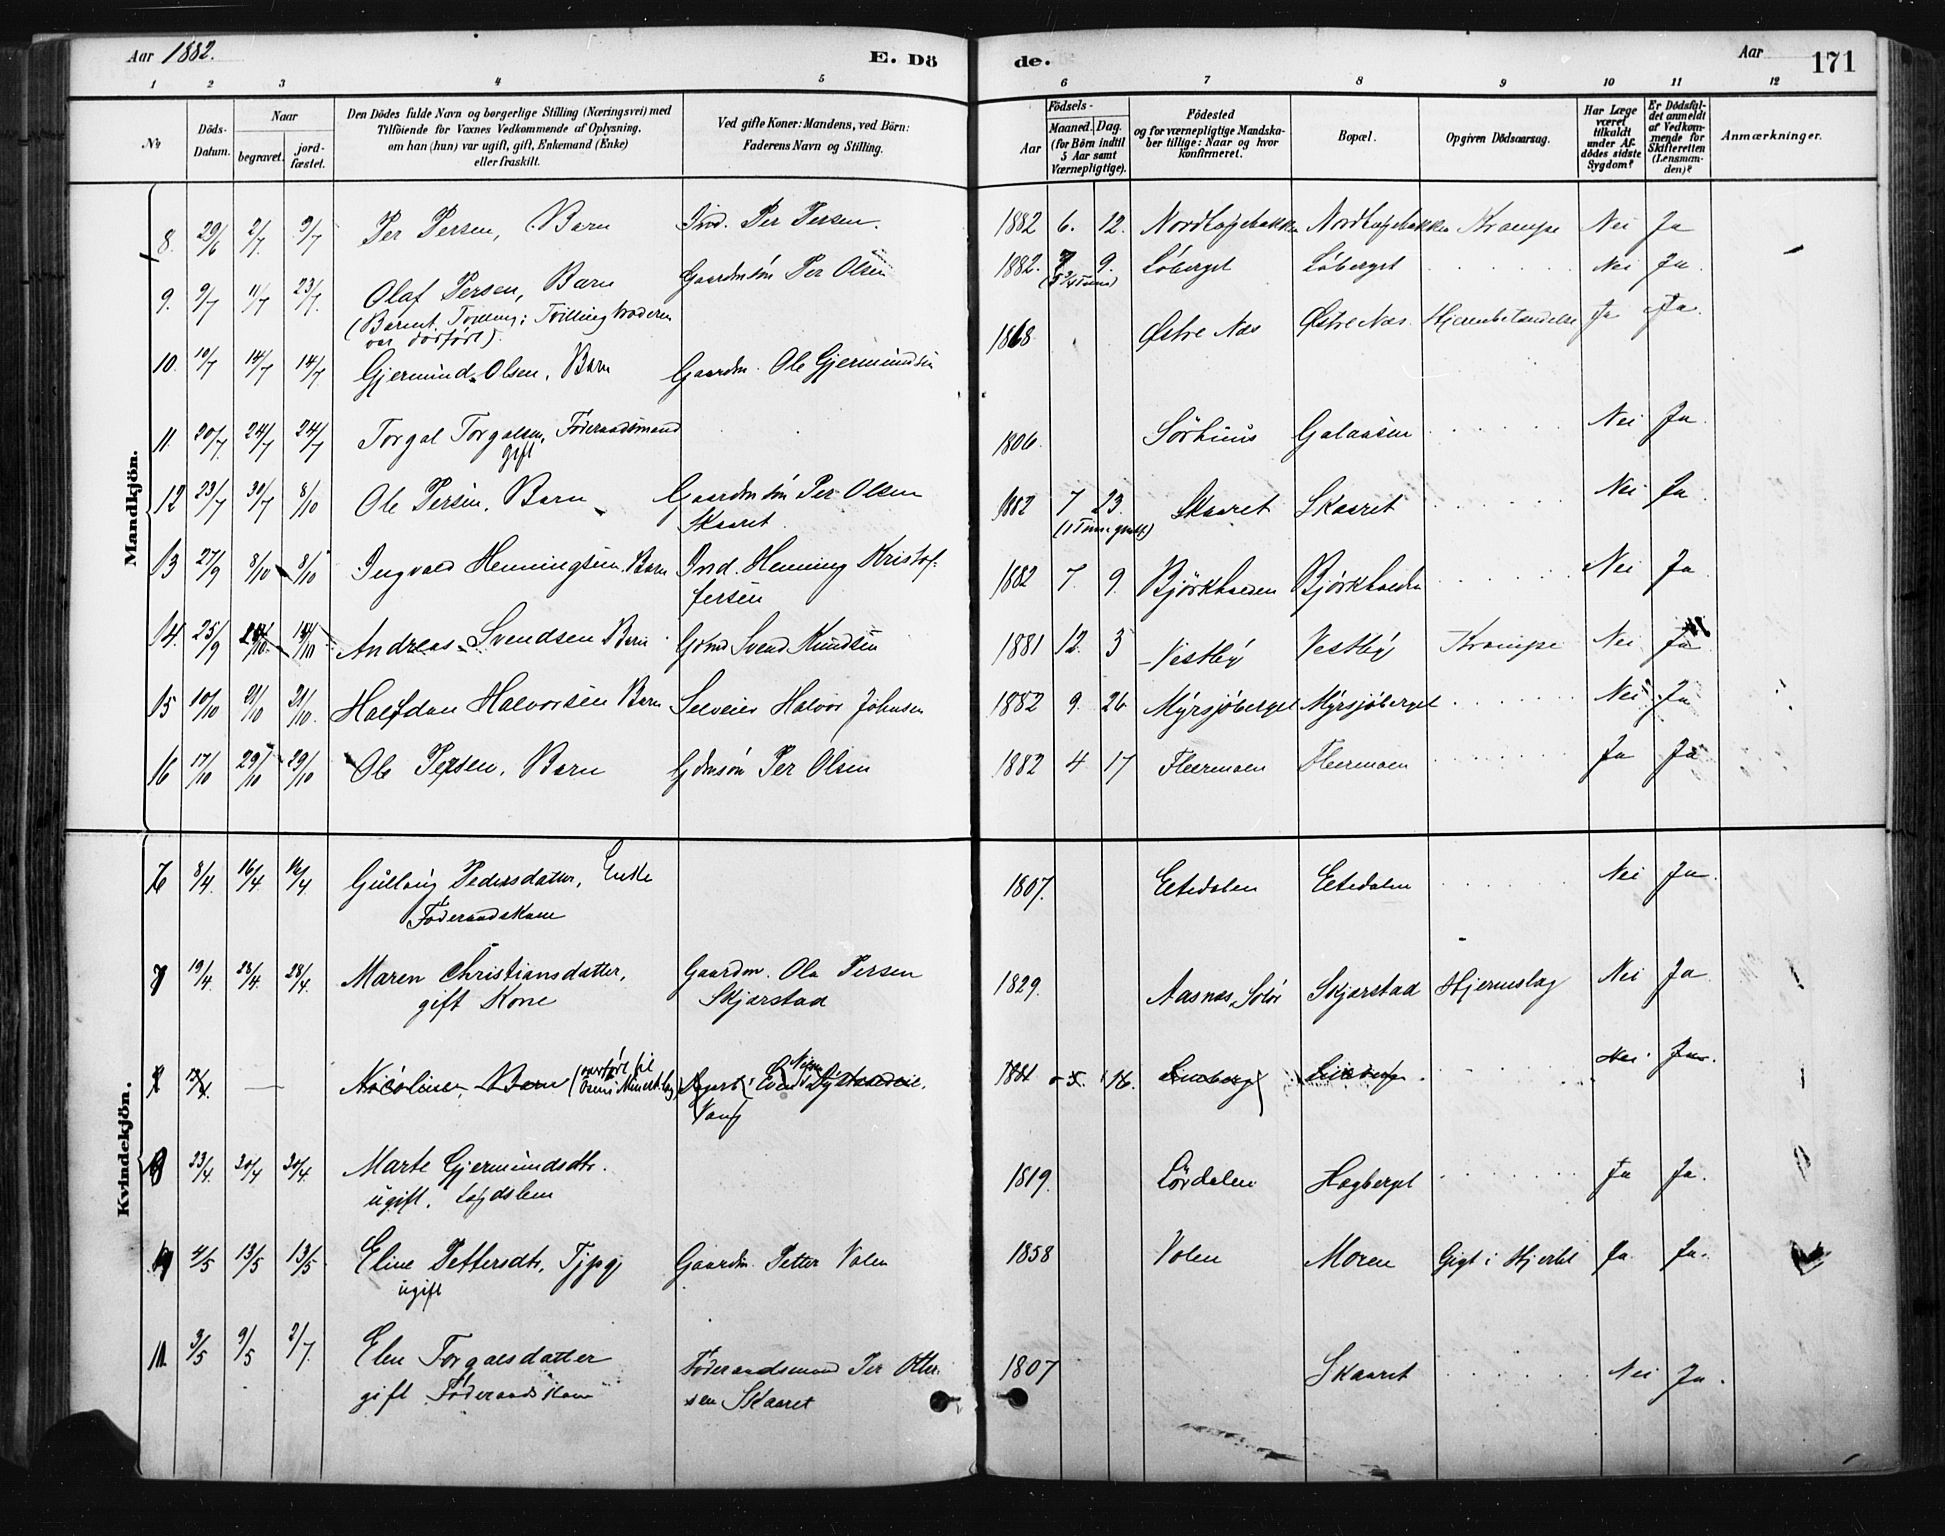 Aar 1882. E. Dö
de. Aar 171
1 2 3 4 5 6 7 8 9 10 11 12
No
Döds-Datum.
Naar
begravet.
jord-fæstet.
Den Dödes fulde Navn og borgerlige Stilling (Næringsvei) med
Tilföiende for Voxnes Vedkommende af Oplysning,
om han (hun) var ugift, gift, Enkemand (Enke)
eller fraskilt.
Ved gifte Koner: Mandens, ved Börn:
Faderens Navn og Stilling.
Födsels-
Aar
Maaned. Dag.
(for Börn indtil
5 Aar samt
Værnepligtige).
Födested
og for værnepligtige Mandska-
ber tillige: Naar og hvor
konfirmeret.
Bopæl.
Opgiven Dödsaarsag.
Har Læge
været
tilkaldt
under Af-
dödes sidste
Sygdom?
Er Dödsfal-
det anmeldt
af Vedkom-
mende for
Skifteretten
(Lensman-
den)?
Anmærkninger.
Mandkjön.
8. 29/6 2/7 2/7 Per Persen, Barn Ind. Per Persen. 1882 6. 12. Krampe Nei Ja
9. 9/7 11/7 23/7 Olaf Persen, Barn Gaardmsön Per Olsen 1882. 7 9. Löberget Löberget Nei Ja
(Barnet Tvilling; Tvillingbroderen
var dödfödt).
10. 10/7 14/7 14/7 Gjermund Olsen, Barn Gaardm. Ole Gjermundsen 1868 Østre Næs Østre Næs Hjernebetændelse Ja Ja.
11. 20/7 24/7 24/7 Torgal Torgalsen, Föderaadsmand 1806. Sörhuus Galaasen Nei Ja.
gift
12 23/7 30/7 8/10 Ole Persen, Barn Gaardmsön Per Olsen 1882 7 23. Skaaret Skaaret Nei Ja
Skaaret.
13 27/9 8/10 8/10 Ingvald Henningsen, Barn Ind. Henning Kristof- 1882 7. 9. Nei Ja
fersen
14. 25/9 14/10 Andreas Svendsen Barn Gbmd Svend Knudsen 1881 12. 3 Vestby Vestby Krampe Nei Ja
15 10/10 21/10 21/10. Halfdan Halvorsen Barn Selveier Halvor Johnsen 1882 9. 26 Myrsjöberget Myrsjöberget Nei Ja
16 17/10 29/10 29/10 Ole Persen, Barn Gdmsön Per Olsen 1882 4 17 Fleermoen Fleermoen Ja Ja
Kvindekjön.
6 8/4. 16/4 16/4 Gullaug Pedersdatter, Enke 1807. Eltedalen Eltedalen Nei Ja.
Föderaadskone
7 19/4. 28/4. 28/4. Maren Christiansdatter, Gaardm. Ola Persen 1829. Aasnæs, Solör Skjærstad Hjerneslag Nei Ja
gift Kone Skjærstad
Nicoline, Barn (overfört til Nei. Ja.
Vang
8 23/4. 30/4 30/4. Marte Gjermundsdtr. 1819. Lördalen Hagberget Ja Ja.
ugift. Lægdslem
4/5 13/5 13/5 Eline Pettersdtr, Tjpg Gaardm. Petter Volen 1858 Volen Moren Gigt i Hjertet Ja. Ja.
ugift
3/5 9/5 2/7. Elen Torgalsdatter Föderaadsmand Per Otter- 1807 Skaaret Nei Ja.
gift Föderaadskone sen Skaaret